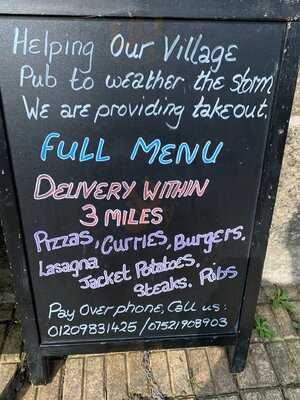 Helping Our Village
Pub to weather the storm
We are providing takeout.
FULL MENU
DELIVERY WITHIN
3 MILES
Pizzas, Curries, Burgers.
Lasagna
Jacket Potatoes.
Steaks. Ribs
Pay Over phone, Call us:
01209831425 / 07521908903